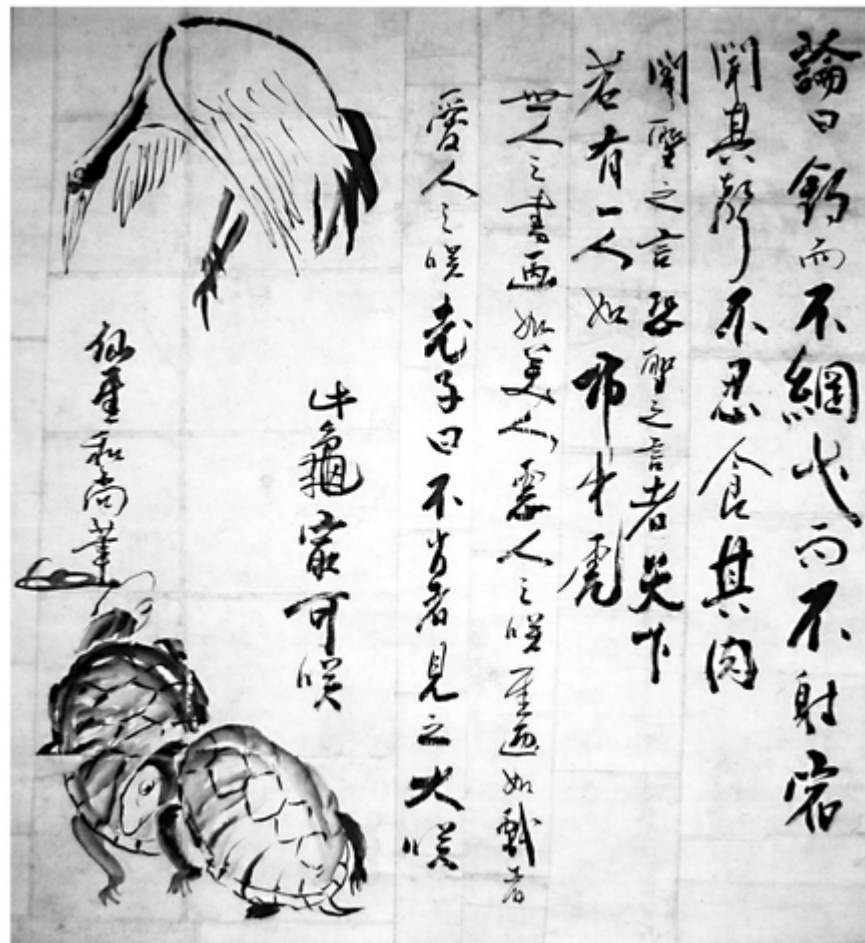 論曰釣而不網弋而不射宿
聞其聲不忍食其肉
聞聖之言恐聖之言者
若有一人如
世人之書画如美人悪人之咲厓画如戯者
愛人之咲老子曰不肖者見之大咲
龜可咲
仙厓和尚筆